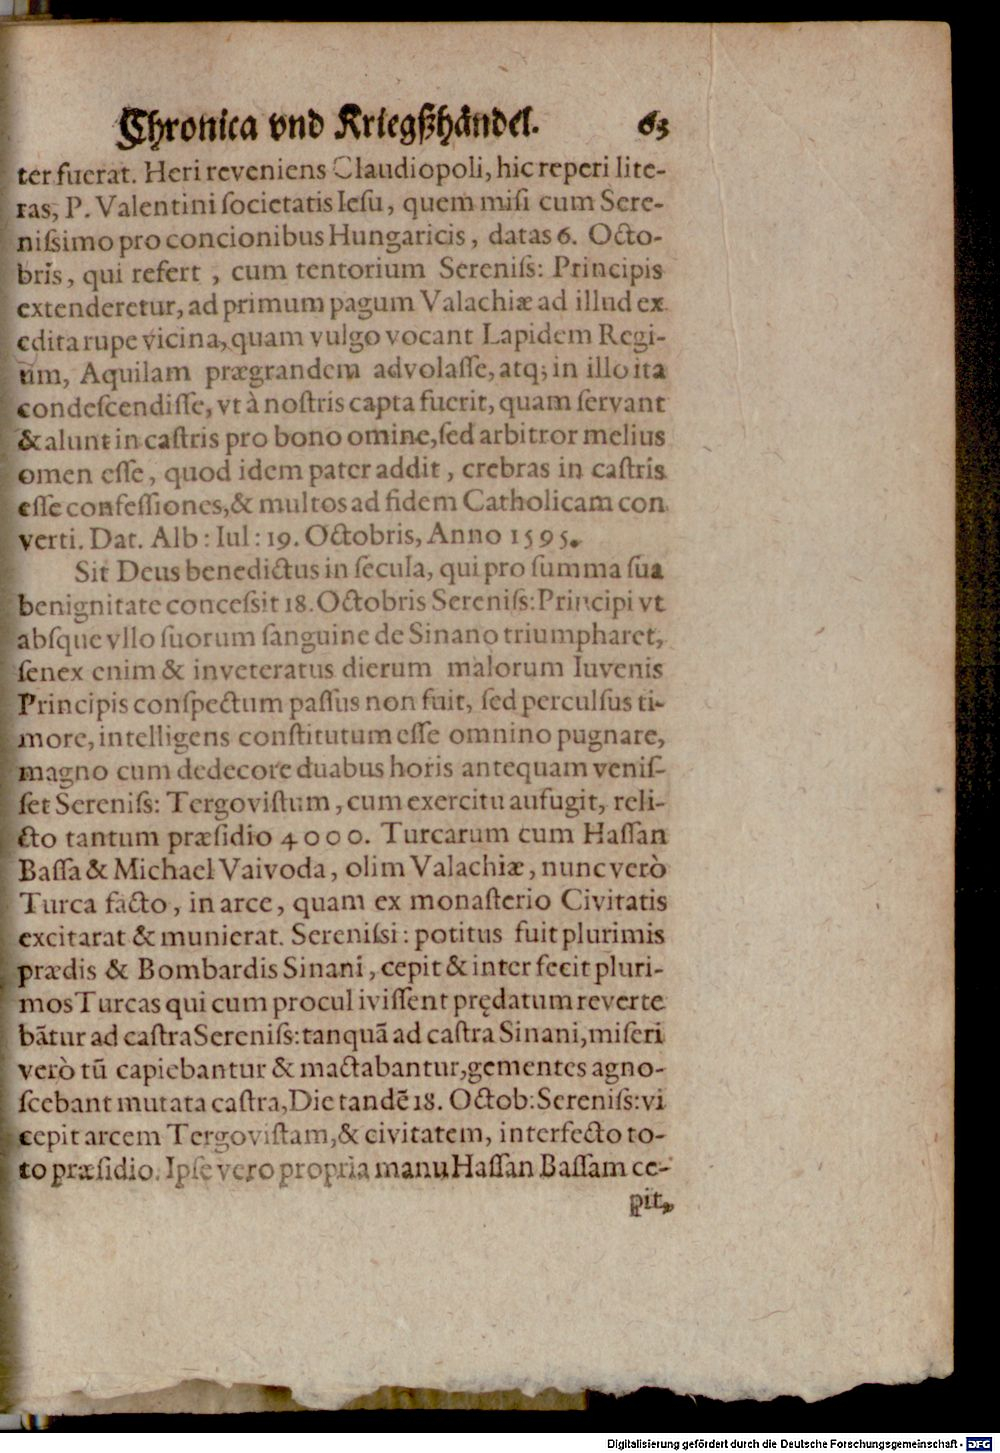 Chronica vnd Kriegßhändel. 63
ter fuerat. Heri reveniens Claudiopoli, hic reperi lite-
ras, P. Valentini ſocietatis Ieſu, quem miſi cum Sere-
niſsimo pro concionibus Hungaricis, datas 6. Octo-
bris, qui refert, cum tentorium Sereniſs: Principis
extenderetur, ad primum pagum Valachiæ ad illud ex
edita rupe vicina, quam vulgo vocant Lapidem Regi-
um, Aquilam prægrandem advolaſſe, atq; in illo ita
condeſcendiſſe, vt à noſtris capta fuerit, quam ſervant
& alunt in caſtris pro bono omine, ſed arbitror melius
omen eſſe, quod idem pater addit, crebras in caſtris
eſſe confeſſiones, & multos ad fidem Catholicam con
verti. Dat. Alb: Iul: 19. Octobris, Anno 1595.
Sit Deus benedictus in ſecula, qui pro ſumma ſua
benignitate conceſsit 18. Octobris Sereniſs: Principi vt
abſque vllo ſuorum ſanguine de Sinano triumpharet,
ſenex enim & inveteratus dierum malorum Iuvenis
Principis conſpectum paſſus non fuit, ſed perculſus ti-
more, intelligens conſtitutum eſſe omnino pugnare,
magno cum dedecore duabus horis antequam veniſ-
ſet Sereniſs: Tergoviſtum, cum exercitu aufugit, reli-
cto tantum præſidio 4000. Turcarum cum Haſſan
Baſſa & Michael Vaivoda, olim Valachiæ, nunc verò
Turca facto, in arce, quam ex monaſterio Civitatis
excitarat & munierat. Sereniſsi: potitus fuit plurimis
prædis & Bombardis Sinani, cepit & inter fecit pluri-
mos Turcas qui cum procul iviſſent prędatum reverte
bātur ad caſtra Sereniſs: tanquā ad caſtra Sinani, miſeri
verò tū capiebantur & mactabantur, gementes agno-
ſcebant mutata caſtra, Die tandē 18. Octob: Sereniſs: vi
cepit arcem Tergoviſtam, & civitatem, interfecto to-
to præſidio. Ipſe vero propria manu Haſſan Baſſam ce-
pit,
Digitalisierung gefördert durch die Deutsche Forschungsgemeinschaft - DFG